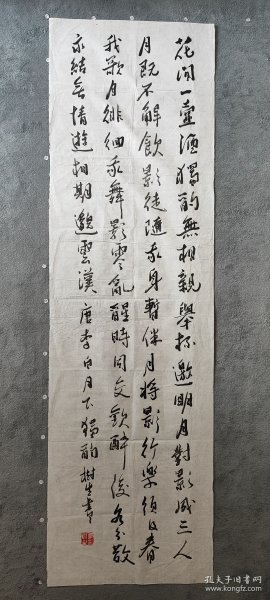 花间一壶酒獨酌無相親舉杯邀明月對影成三人
月既不解飲影徒隨我身暫伴月將影行樂須及春
我歌月徘徊我舞影零亂醒時同交歡醉後各分散
永結無情遊相期邈雲漢 唐李白月下獨酌 樹生書
孔夫子旧书网